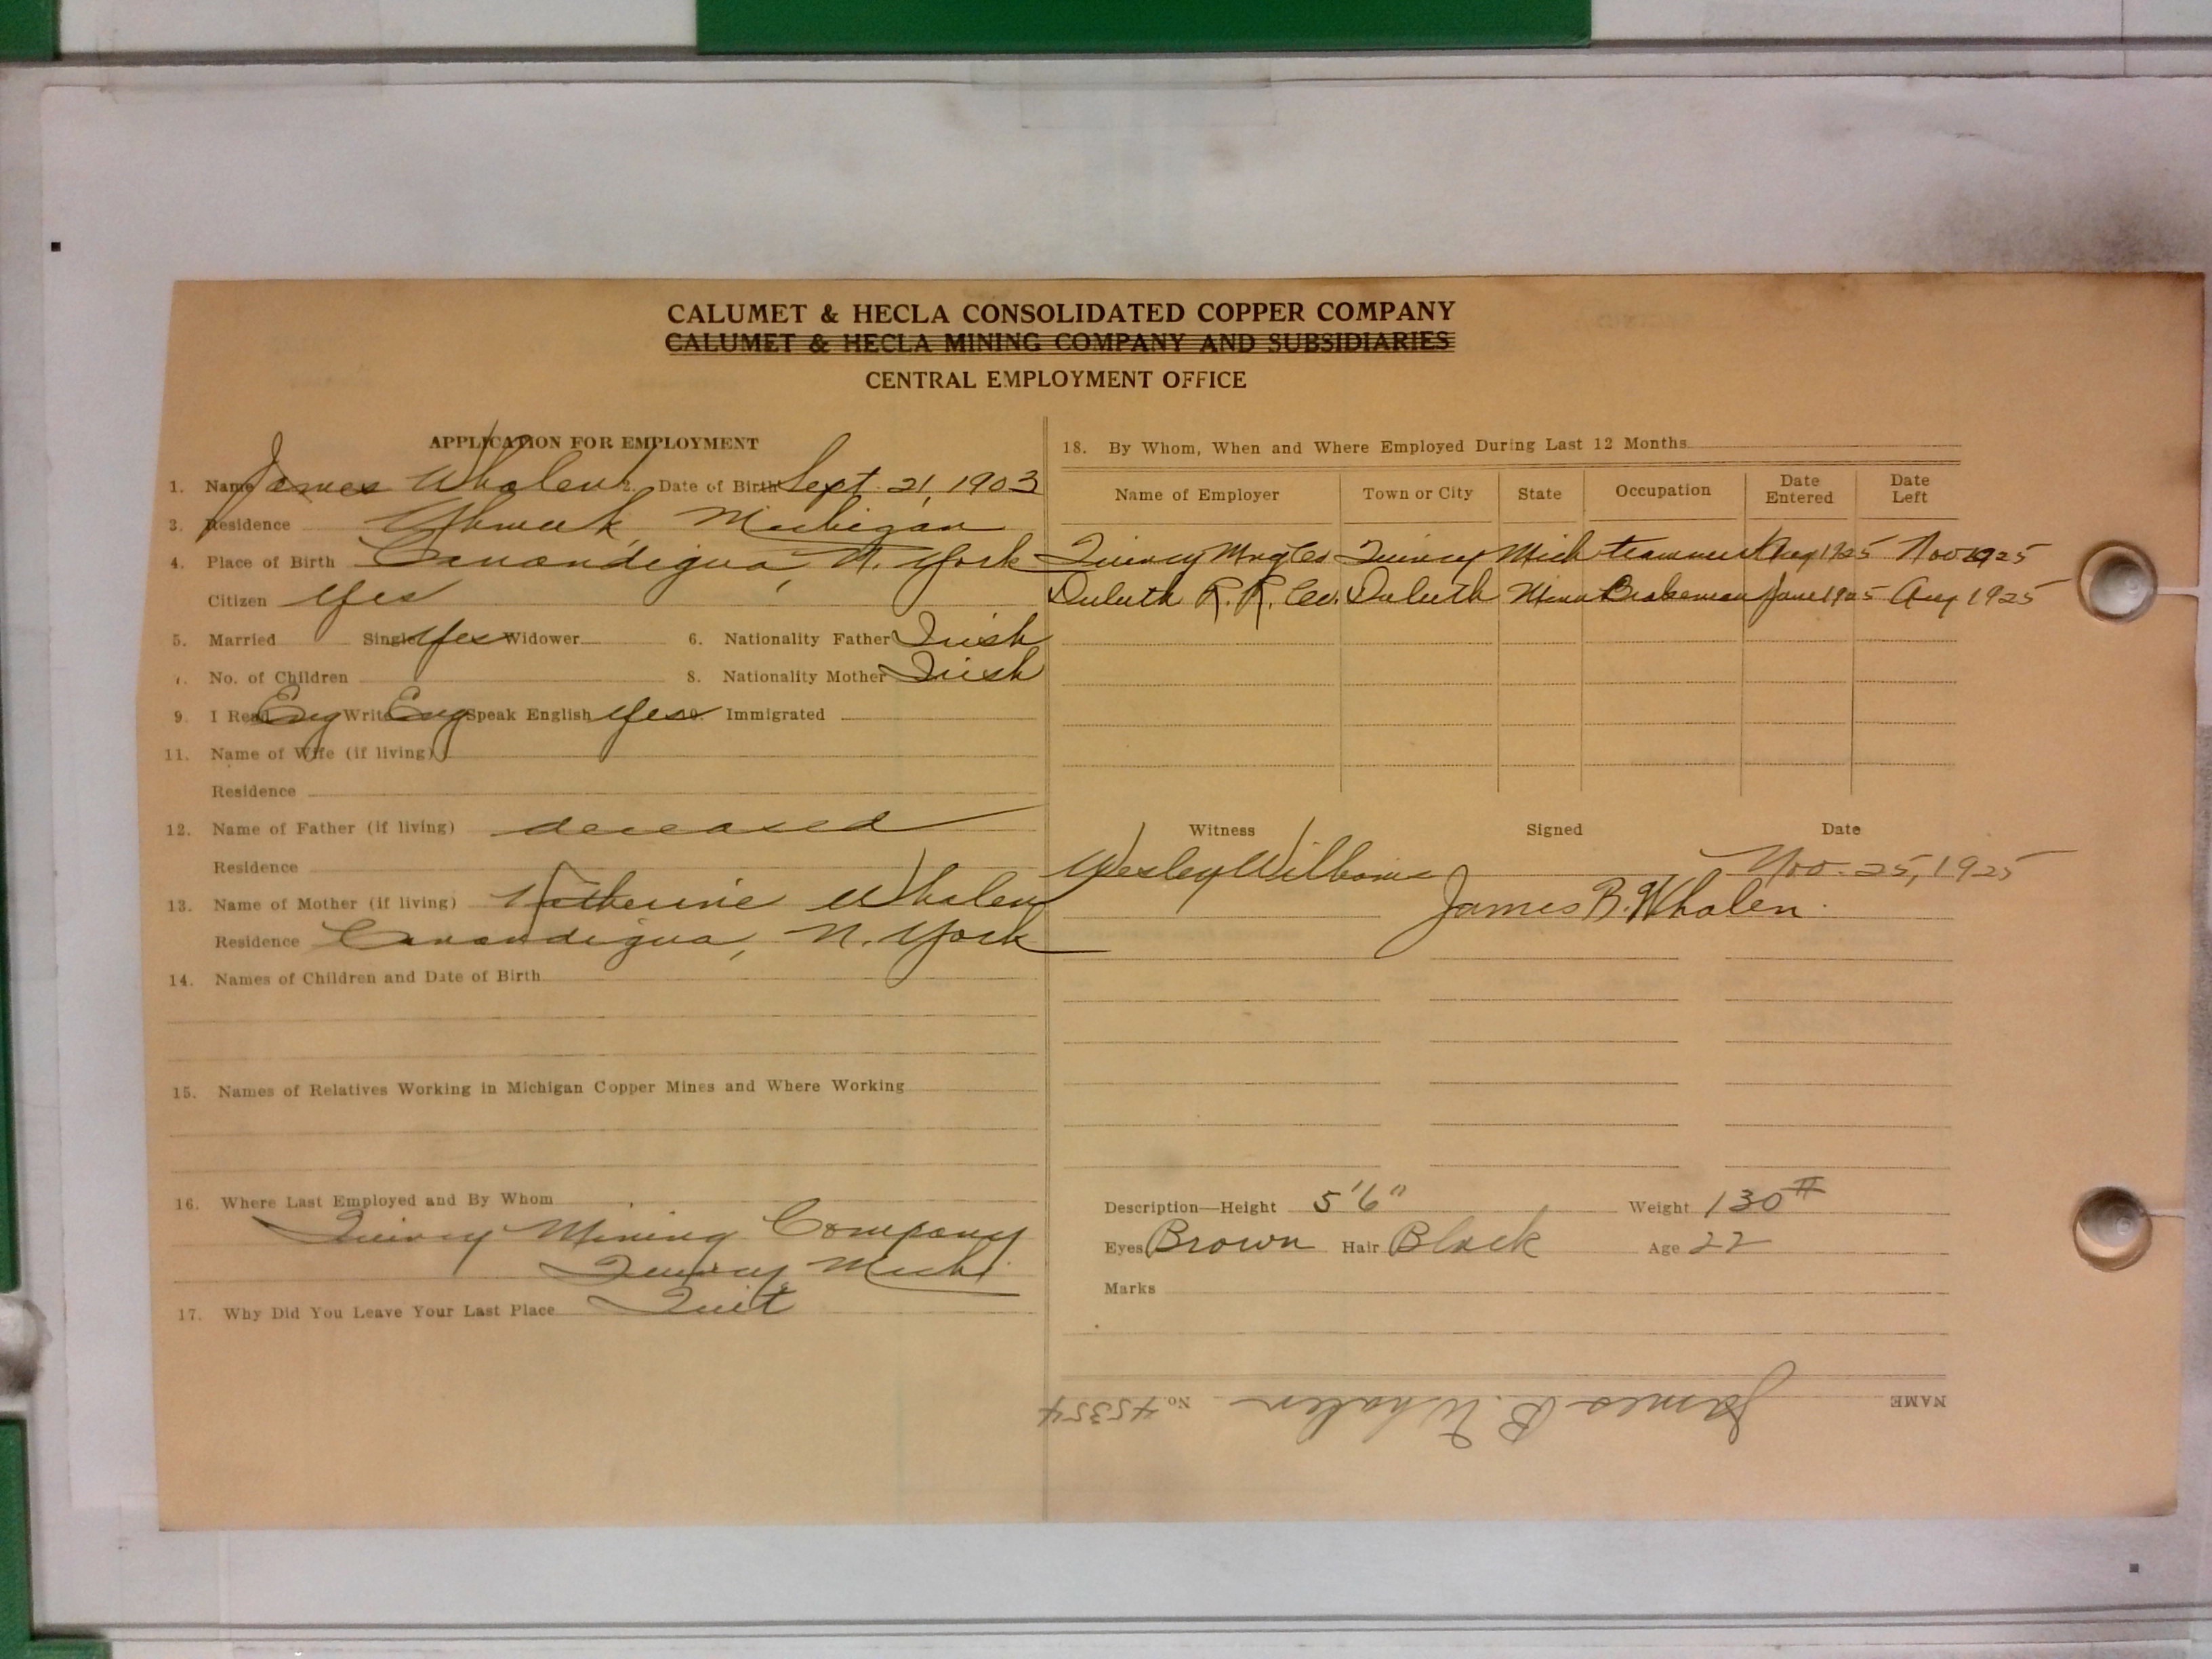 CALUMET & HECLA CONSOLIDATED COPPER COMPANY
CALUMET & HECLA MINING COMPANY AND SUBSIDIARIES
CENTRAL EMPLOYMENT OFFICE
APPLICATION FOR EMPLOYMENT
1. Name James Whalen 2. Date of Birth Sept. 21, 1903
3. Residence Ahmeek, Michigan
4. Place of Birth Canandigua, N. York
Citizen Yes
5. Married Single Yes Widower 6. Nationality Father Irish
7. No. of Children 8. Nationality Mother Irish
9. I Read Eng Write Eng Speak English Yes 10. Immigrated
11. Name of Wife (if living)
Residence
12. Name of Father (if living) deceased
Residence
13. Name of Mother (if living) Katherine Whalen
Residence Canandigua, N. York
14. Names of Children and Date of Birth
15. Names of Relatives Working in Michigan Copper Mines and Where Working
16. Where Last Employed and By Whom
Quincy Mining Company
Quincy, Mich.
17. Why Did You Leave Your Last Place Quit
18. By Whom, When and Where Employed During Last 12 Months
Name of Employer Town or City State Occupation Date Entered Date Left
Quincy Mng Co Quincy Mich trammer Aug 1925 Nov 1925
Duluth R. R. Co. Duluth Minn Brakeman June 1925 Aug 1925
Witness Signed Date
Wesley Williams Nov. 25, 1925
James B. Whalen.
Description—Height 5'6" Weight 130#
Eyes Brown Hair Black Age 22
Marks
NAME James B. Whalen No. 45354